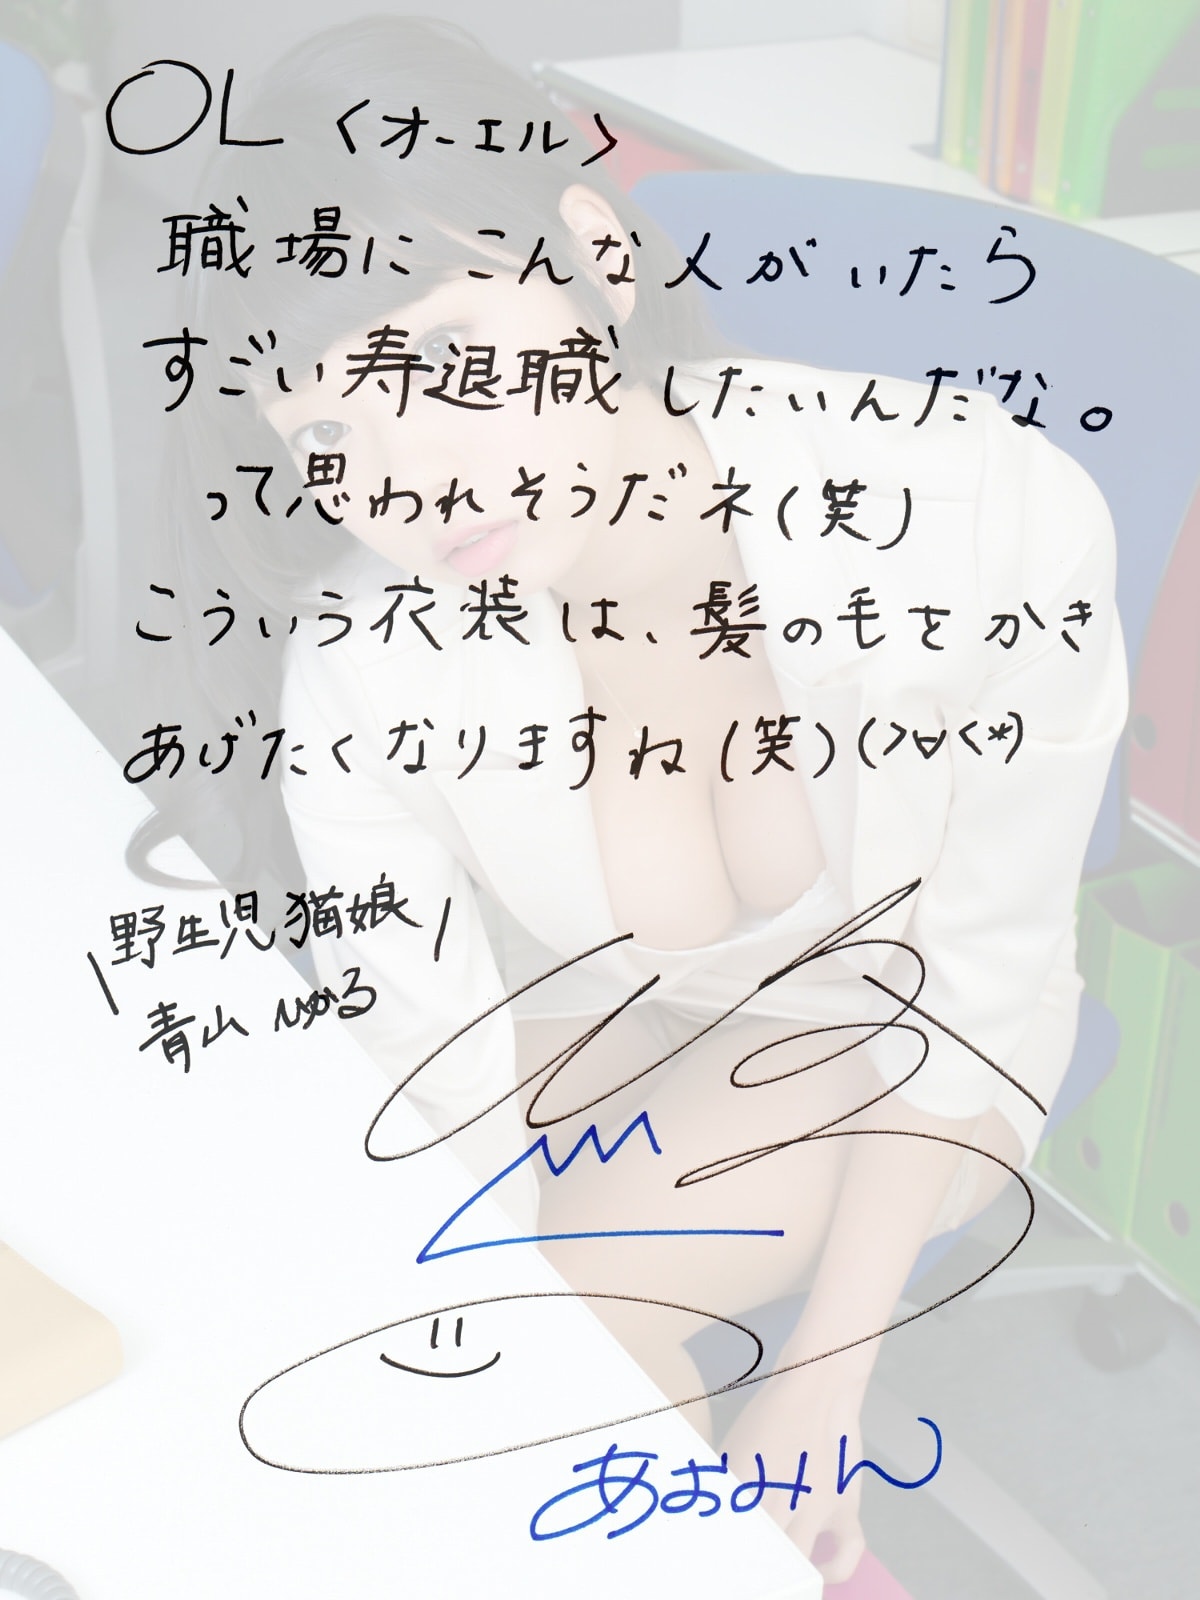 OL〈オーエル〉
職場にこんな人がいたら
すごい寿退職したいんだな。
って思われそうだネ(笑)
こういう衣装は、髪の毛を かき
あげたくなりますね(笑)(>∀<*)
野生児猫娘
青山ひかる
あおみん